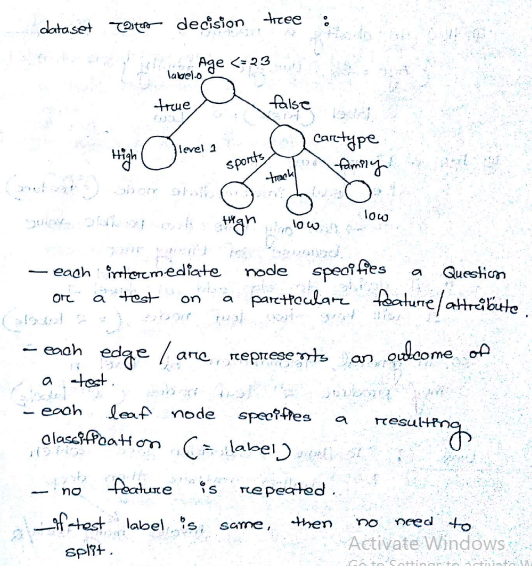 dataset থেকে decision tree :
Age <= 23
label 0
true
false
High
level 1
car type
sports
truck
family
High
low
low
— each intermediate node specifies a Question
or a test on a particular feature/attribute.
— each edge / arc represents an outcome of
a test.
— each leaf node specifies a resulting
classification (= label)
— no feature is repeated.
— if test label is same, then no need to
split.
Activate Windows
Go to Settings to activate W